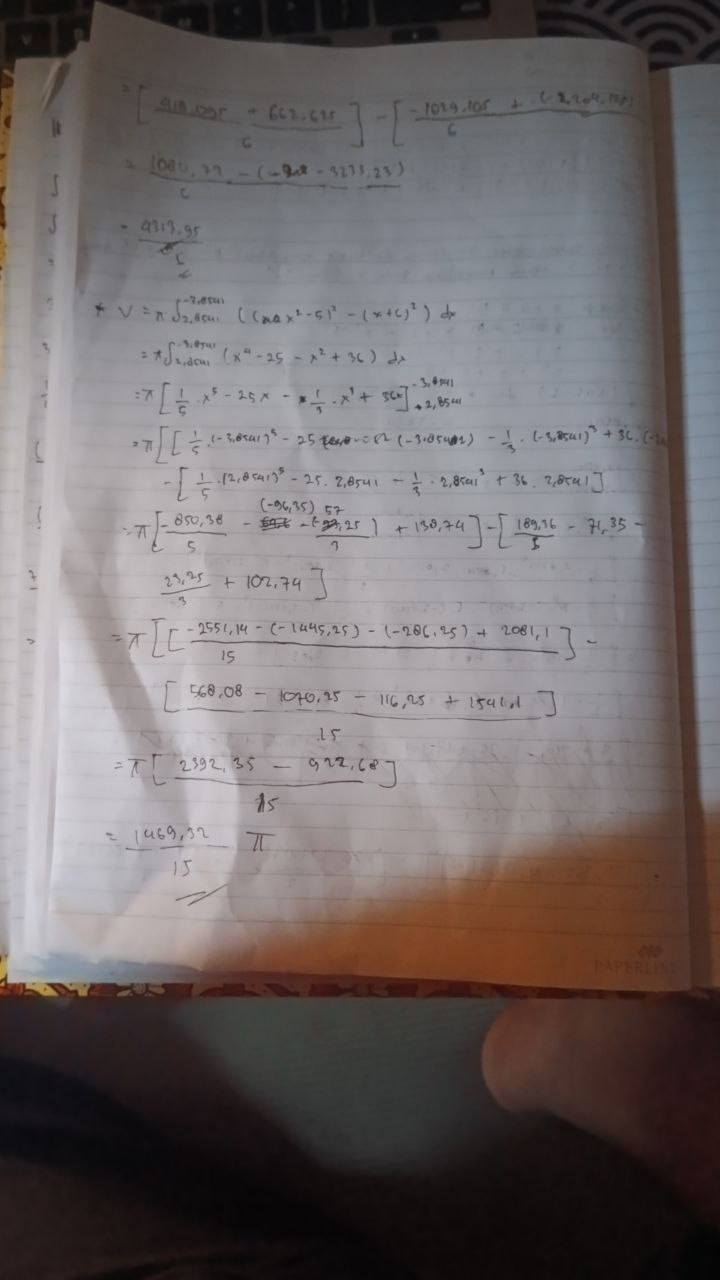 = [ 918,095 + 662,625 / 6 ] - [ -1029,105 + (-2,204,125) / 6
= 1080,72 - ( - 3233,23) / 6
= 4313,95 / 6
* V = π ∫ -3,8541 2,8541 ((x² - 5)² - (x+6)²) dx
= π ∫ -3,8541 2,8541 (x⁴ - 25 - x² + 36) dx
= π [ 1/5 . x⁵ - 25x - 1/3 . x³ + 36x ] -3,8541 2,8541
= π [[ 1/5 . (-3,8541)⁵ - 25 (-3,8541) - 1/3 . (-3,8541)³ + 36.
- [ 1/5 . (2,8541)⁵ - 25. 2,8541 - 1/3 . 2,8541³ + 36. 2,8541 ]
= π [ -850,38 / 5 - (-96,35) - (-57,25) / 3 + 138,74 ] - [ 189,36 / 5 - 71,35 -
23,25 / 3 + 102,74 ]
= π [[ -2551,14 - (-1445,25) - (-286,25) + 2081,1 / 15 ] -
[ 568,08 - 1070,25 - 116,25 + 1541,1 / 15 ]
= π [ 2392,35 - 922,68 / 15 ]
= 1469,32 / 15 π
PAPERLINE